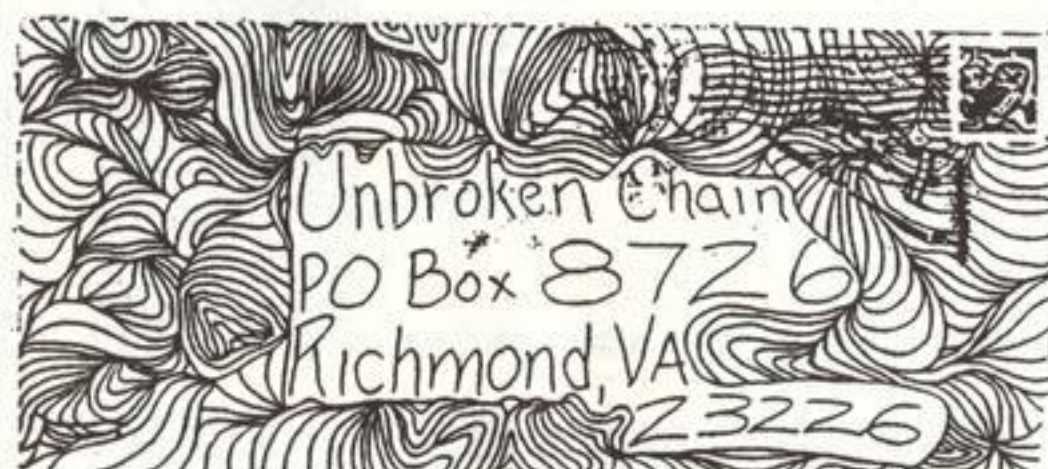 Unbroken Chain
PO Box 8726
Richmond, VA
23226